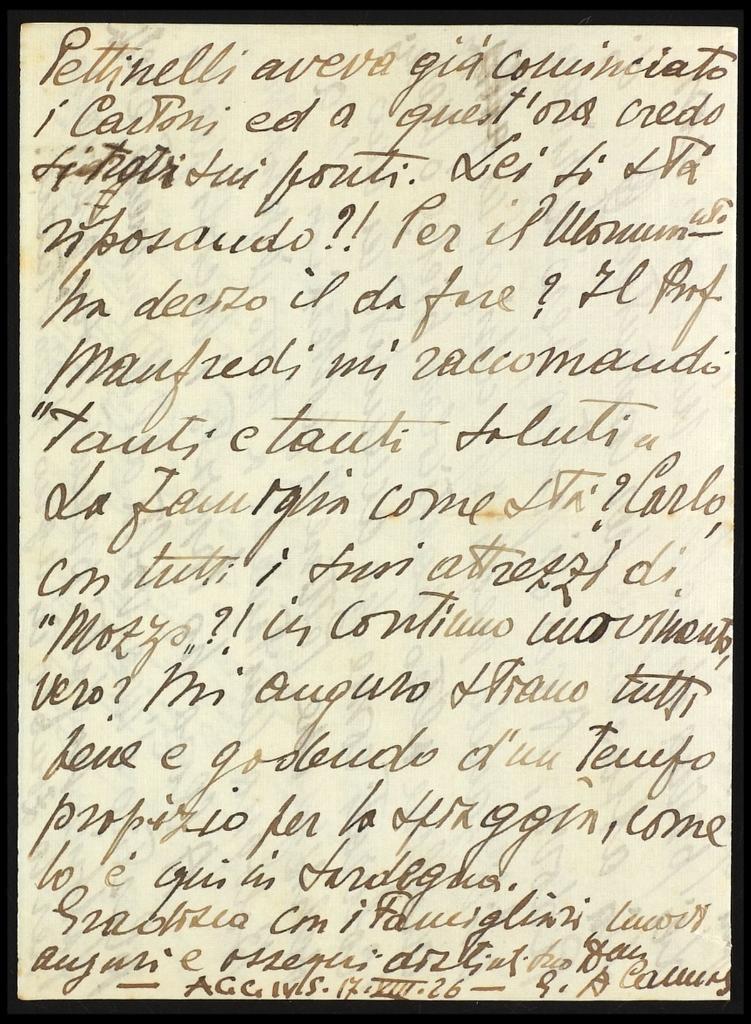 Pettinelli aveva già cominciato
i Cartoni ed a quest'ora credo
si sui ponti. Lei si stà
riposando?!! Per il Monum<sup>nto</sup>
ha deciso il da fare? Il Prof.
Manfredi mi raccomandò
"Tanti e tanti saluti"
La famiglia come stà? Carlo,
con tutti i suoi attrezzi di
"Mozzo"?! in continuo movimento,
vero? Mi auguro stiano tutti
bene e godendo d'un tempo
propizio per la spiaggia, come
lo è qui in Sardegna.
Gradisca con i Famigliari, nuovi
auguri e ossequi distinti
17.VIII.26 —